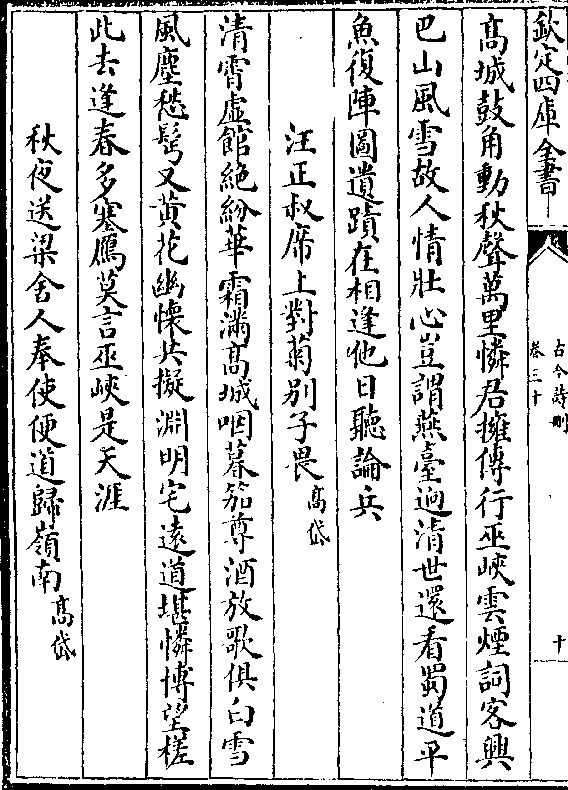 欽定四庫全書
古今詩刪
卷三十
十
高城鼓角動秋聲萬里憐君擁傳行巫峽雲煙詞客興
巴山風雪故人情壯心豈謂燕臺逈清世還看蜀道平
魚復陣圖遺蹟在相逢他日聽論兵
汪正叔席上對菊別子畏 高岱
清霄虛館絶紛華霜滿高城咽暮笳尊酒放歌俱白雪
風塵愁鬂又黃花幽懷共擬淵明宅遠道堪憐博望槎
此去逢春多塞鴈莫言巫峽是天涯
秋夜送梁舍人奉使便道歸嶺南 高岱